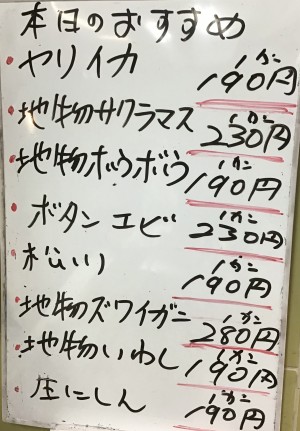 本日のおすすめ
ヤリイカ 1カン 190円
地物サクラマス 1カン 230円
地物ホウボウ 1カン 190円
ボタンエビ 1カン 230円
松川 1カン 190円
地物ズワイガニ 1カン 280円
地物いわし 1カン 190円
生にしん 1カン 190円